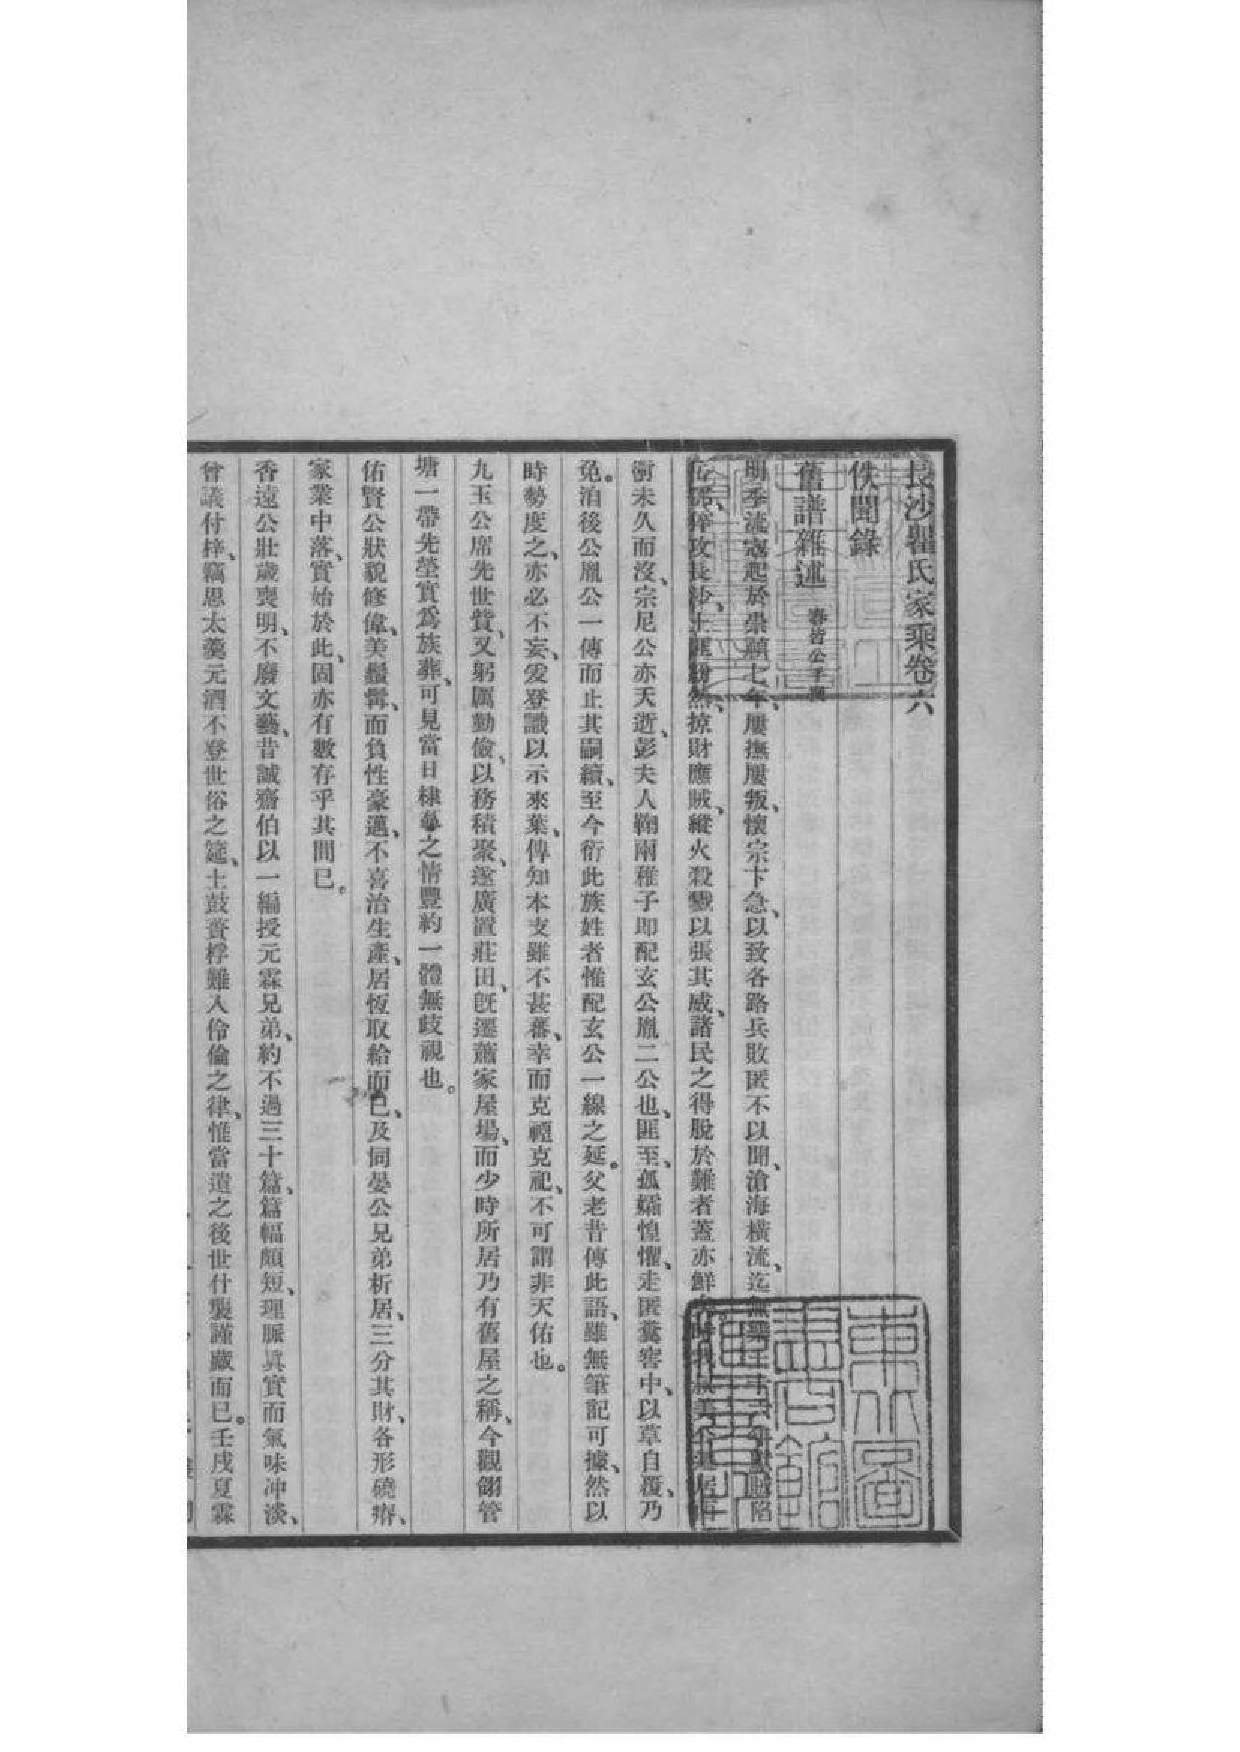 長沙瞿氏家乘卷六
佚聞錄
舊譜雜述 春皆公手
明季流寇起於崇禎七年、屢撫屢叛、懷宗卞急、以致各路兵敗匿不以聞、滄海横流、迄無 陷
攻長沙、土匪紛然、掠財應賊、縱火殺戮以張其威、諸民之得脫於難者蓋亦鮮
衡未久而沒、宗尼公亦夭逝、彭夫人鞠兩稚子即配玄公胤二公也、匪至、孤孀惶懼、走匿糞窖中、以草自覆、乃
免。洎後公胤公一傳而止其嗣續、至今衍此族姓者惟配玄公一線之延。父老昔傳此語、雖無筆記可據、然以
時勢度之、亦必不妄、爰登識以示來葉、傳知本支雖不甚蕃、幸而克禋克祀、不可謂非天佑也。
九玉公席先世貲、又躬厲勤儉、以務積聚、遂廣置莊田、既遷蕭家屋場、而少時所居乃有舊屋之稱、今觀翎管
塘一帶先塋實爲族葬、可見當日棣萼之情豐約一體無歧視也。
佑賢公狀貌修偉、美鬚髯、而負性豪邁、不喜治生產、居恆取給而已、及同晏公兄弟析居、三分其財、各形磽瘠、
家業中落、實始於此、固亦有數存乎其間已。
香遠公壯歲喪明、不廢文藝、昔誠齋伯以一編授元霖兄弟、約不過三十篇、篇幅頗短、理脈眞實而氣味冲淡、
曾議付梓、竊思太羹元酒不登世俗之筵、土鼓蕢桴難入伶倫之律、惟當遺之後世什襲謹藏而已。壬戌夏霖
東方圖
書館